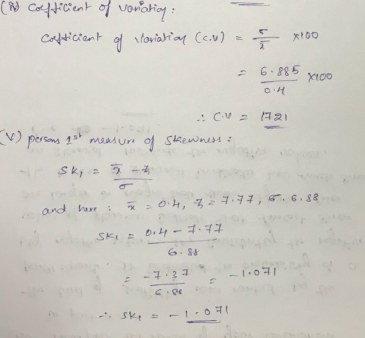 (iv) Coefficient of variation:
Coefficient of variation (C.V) = σ/x̄ ×100
= 6.885/0.4 ×100
∴ C.V = 1721
(V) persons 1st measure of Skewness:
SK₁ = x̄ - z/σ
and here: x̄ = 0.4, z = 7.77, σ. 6.88
SK₁ = 0.4 - 7.77/6.88
= -7.37/6.88 = -1.071
∴ SK₁ = -1.071